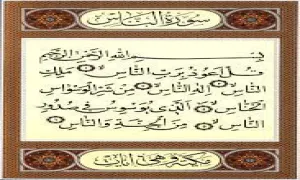 سورة الناس
بسم الله الرحمن الرحيم
قل اعوذ برب الناس ملك
الناس اله الناس من شر الوسواس
الخناس الذي يوسوس في صدور
الناس من الجنة والناس
مكية وهي آيات